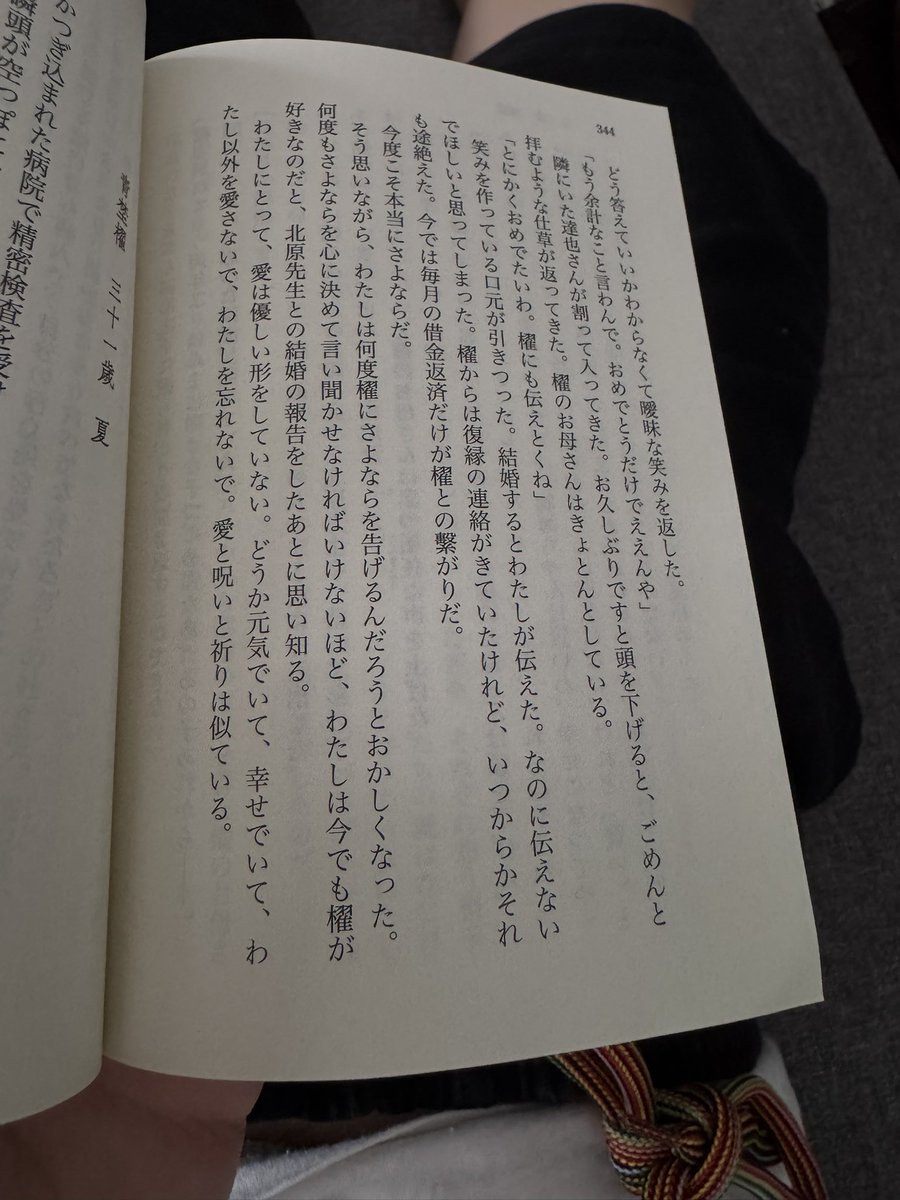 344
どう答えていいかわからなくて曖昧な笑みを返した。
「もう余計なこと言わんで。おめでとうだけでええんや」
隣にいた達也さんが割って入ってきた。お久しぶりですと頭を下げると、ごめんと
拝むような仕草が返ってきた。櫂のお母さんはきょとんとしている。
「とにかくおめでたいわ。櫂にも伝えとくね」
笑みを作っている口元が引きつった。結婚するとわたしが伝えた。なのに伝えない
でほしいと思ってしまった。櫂からは復縁の連絡がきていたけれど、いつからかそれ
も途絶えた。今では毎月の借金返済だけが櫂との繋がりだ。
今度こそ本当にさよならだ。
そう思いながら、わたしは何度櫂にさよならを告げるんだろうとおかしくなった。
何度もさよならを心に決めて言い聞かせなければいけないほど、わたしは今でも櫂が
好きなのだと、北原先生との結婚の報告をしたあとに思い知る。
わたしにとって、愛は優しい形をしていない。どうか元気でいて、幸せでいて、わ
たし以外を愛さないで、わたしを忘れないで。愛と呪いと祈りは似ている。
櫂 三十一歳 夏
かつぎ込まれた病院で精密検査を受け
瞬頭が空っぽに